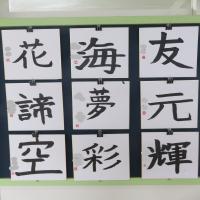 花 海 友
諦 夢 元
空 彩 輝